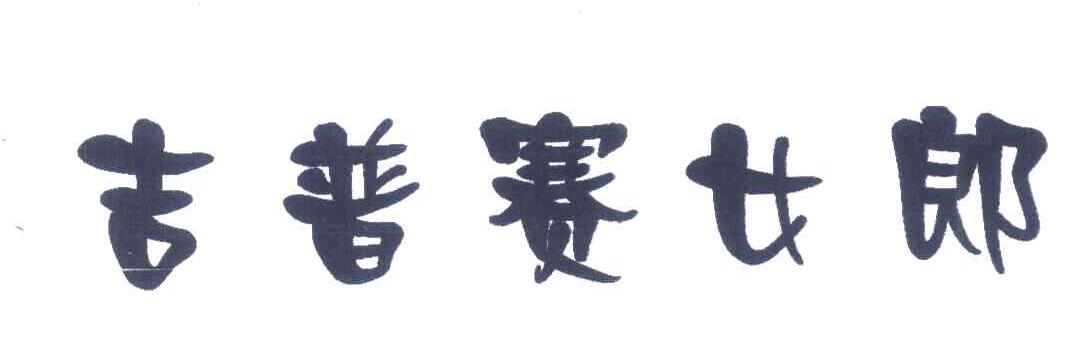 吉普赛女郎